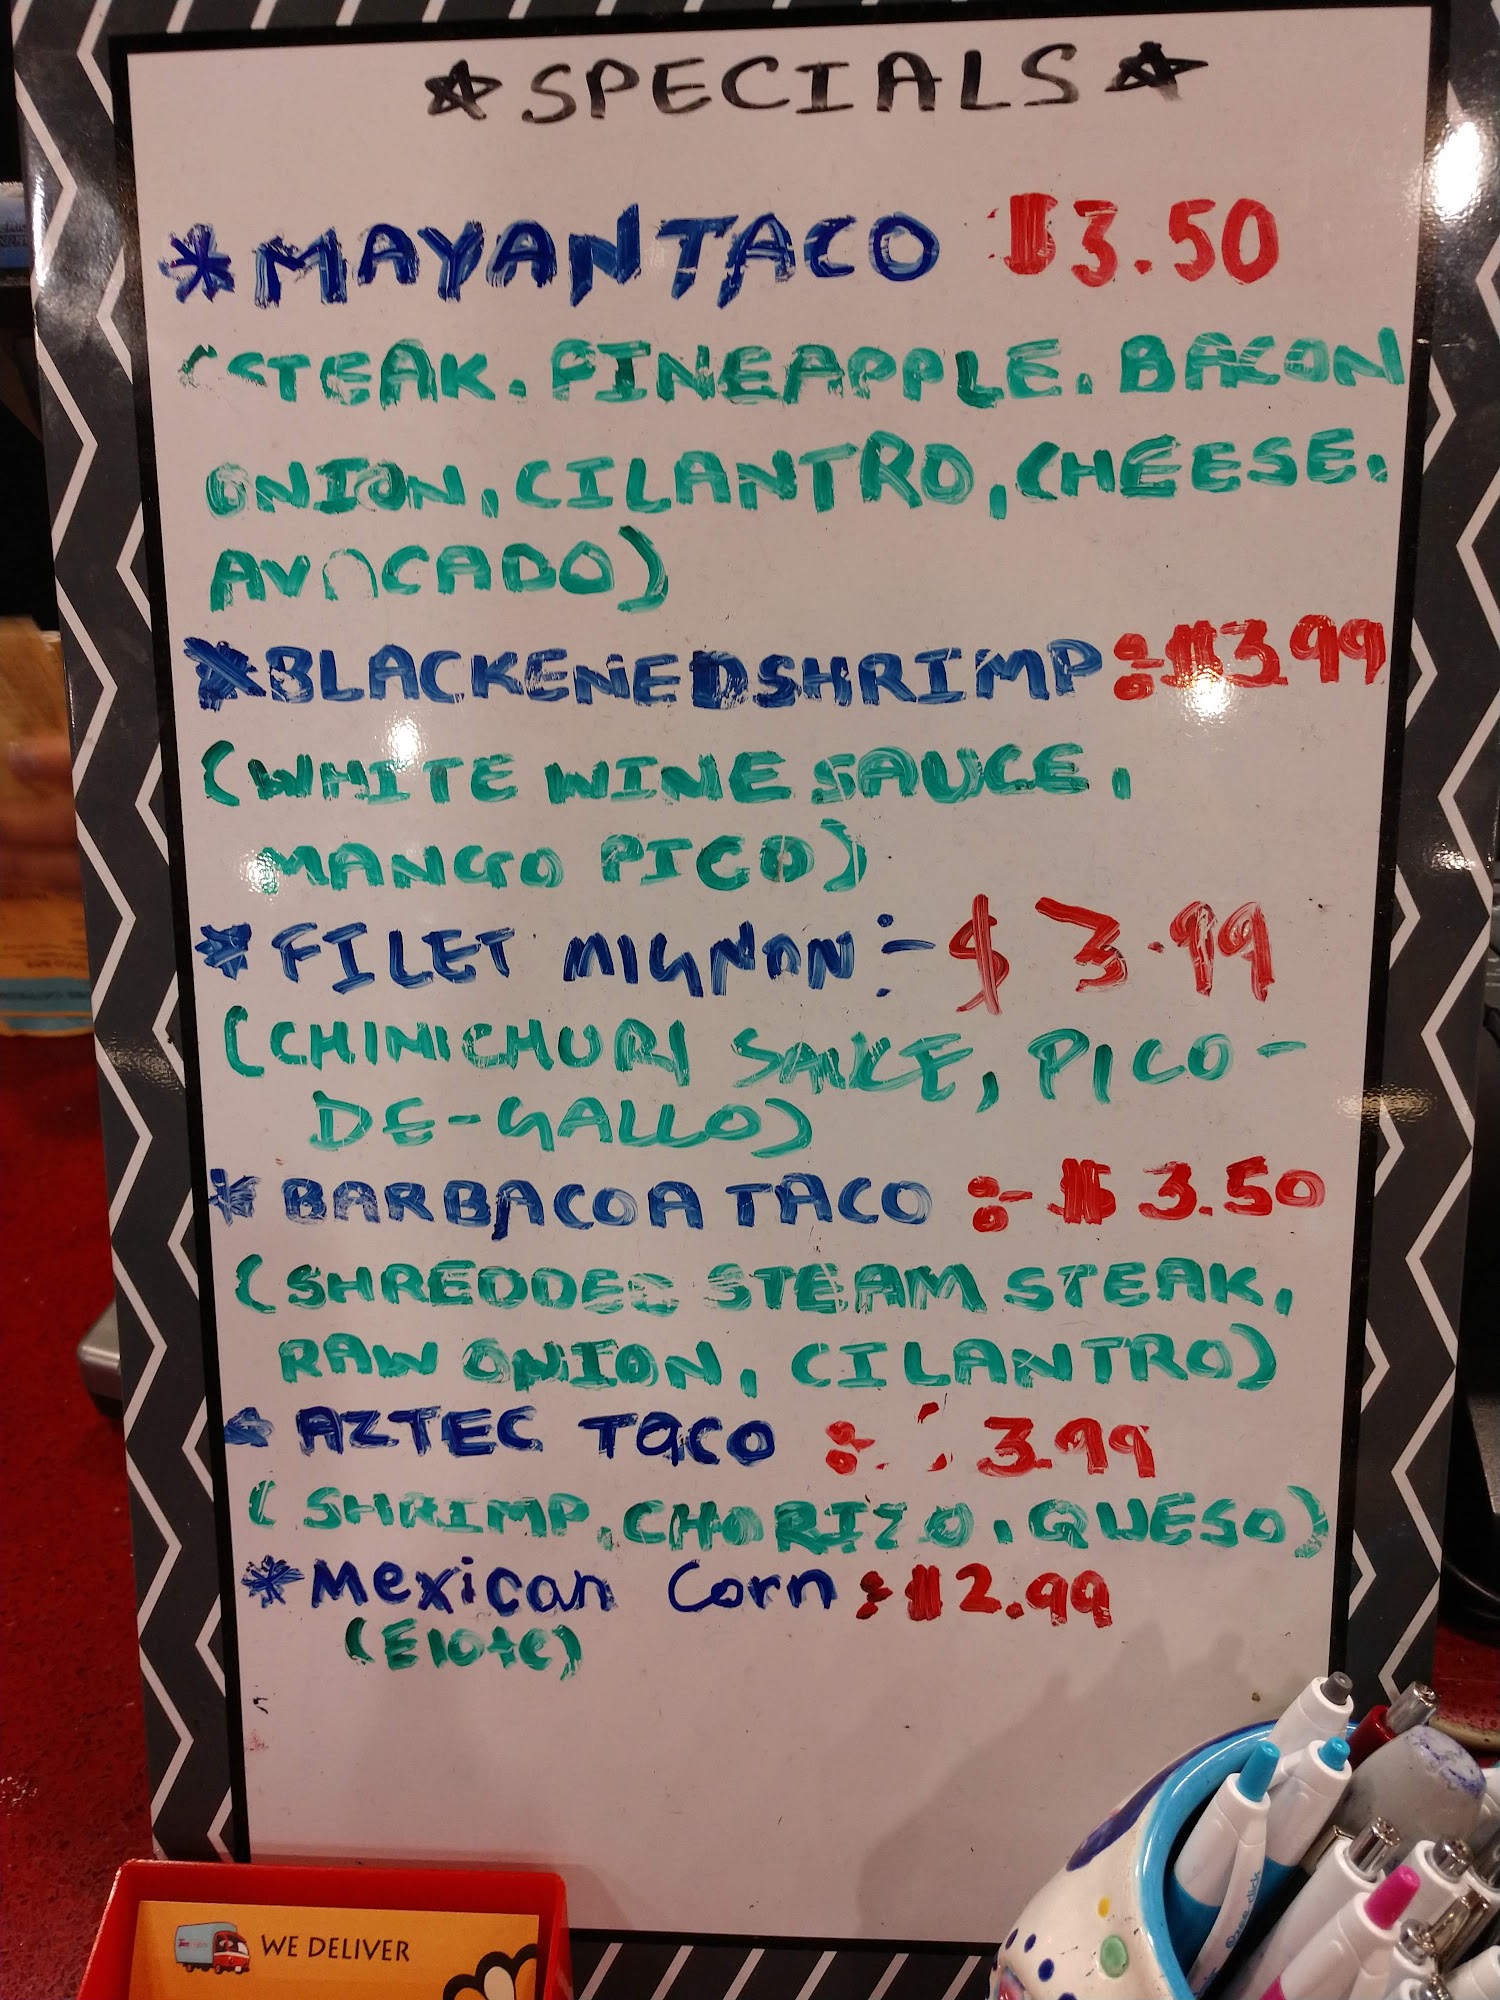 ☆SPECIALS☆
*MAYAN TACO $3.50
(STEAK. PINEAPPLE. BACON
ONION, CILANTRO, CHEESE.
AVOCADO)
*BLACKENED SHRIMP:-$3.99
(WHITE WINE SAUCE,
MANGO PICO)
*FILET MIGNON:-$3.99
(CHINICHURI SAUCE, PICO-
DE-GALLO)
*BARBACOA TACO:-$3.50
(SHREDDED STEAM STEAK,
RAW ONION, CILANTRO)
*AZTEC TACO:- 3.99
(SHRIMP, CHORIZO, QUESO)
*Mexican Corn:-$2.99
(Elote)
WE DELIVER